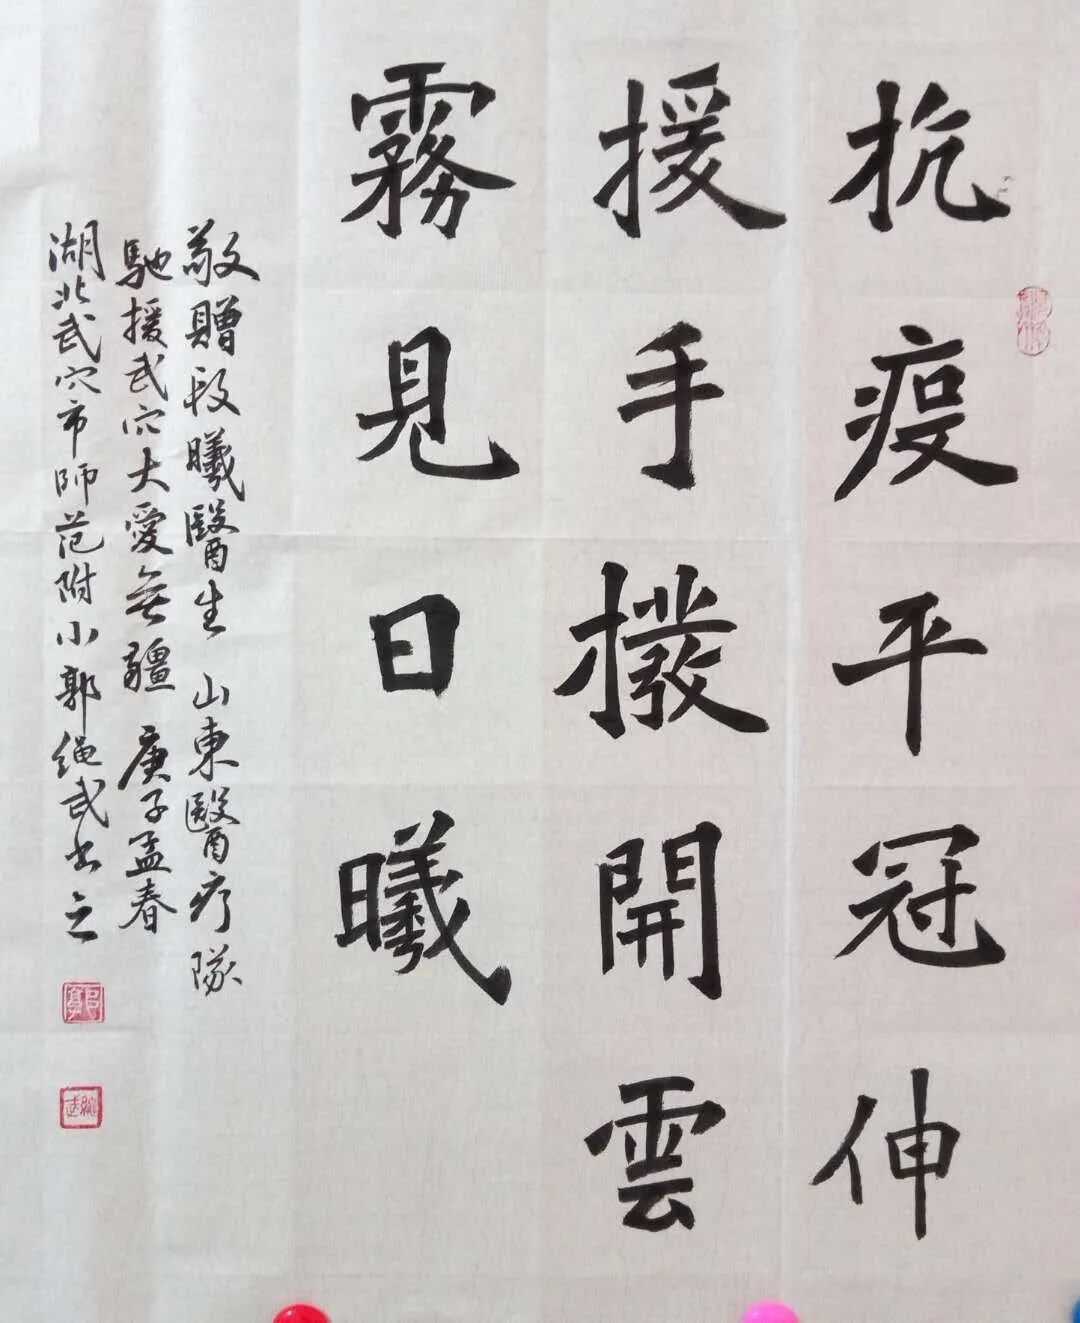 抗疫平冠伸
援手撥開雲
霧見日曦
敬贈段曦醫生 山東醫疗隊
馳援武穴大愛无疆 庚子孟春
湖北武穴市師范附小郭绳武书之